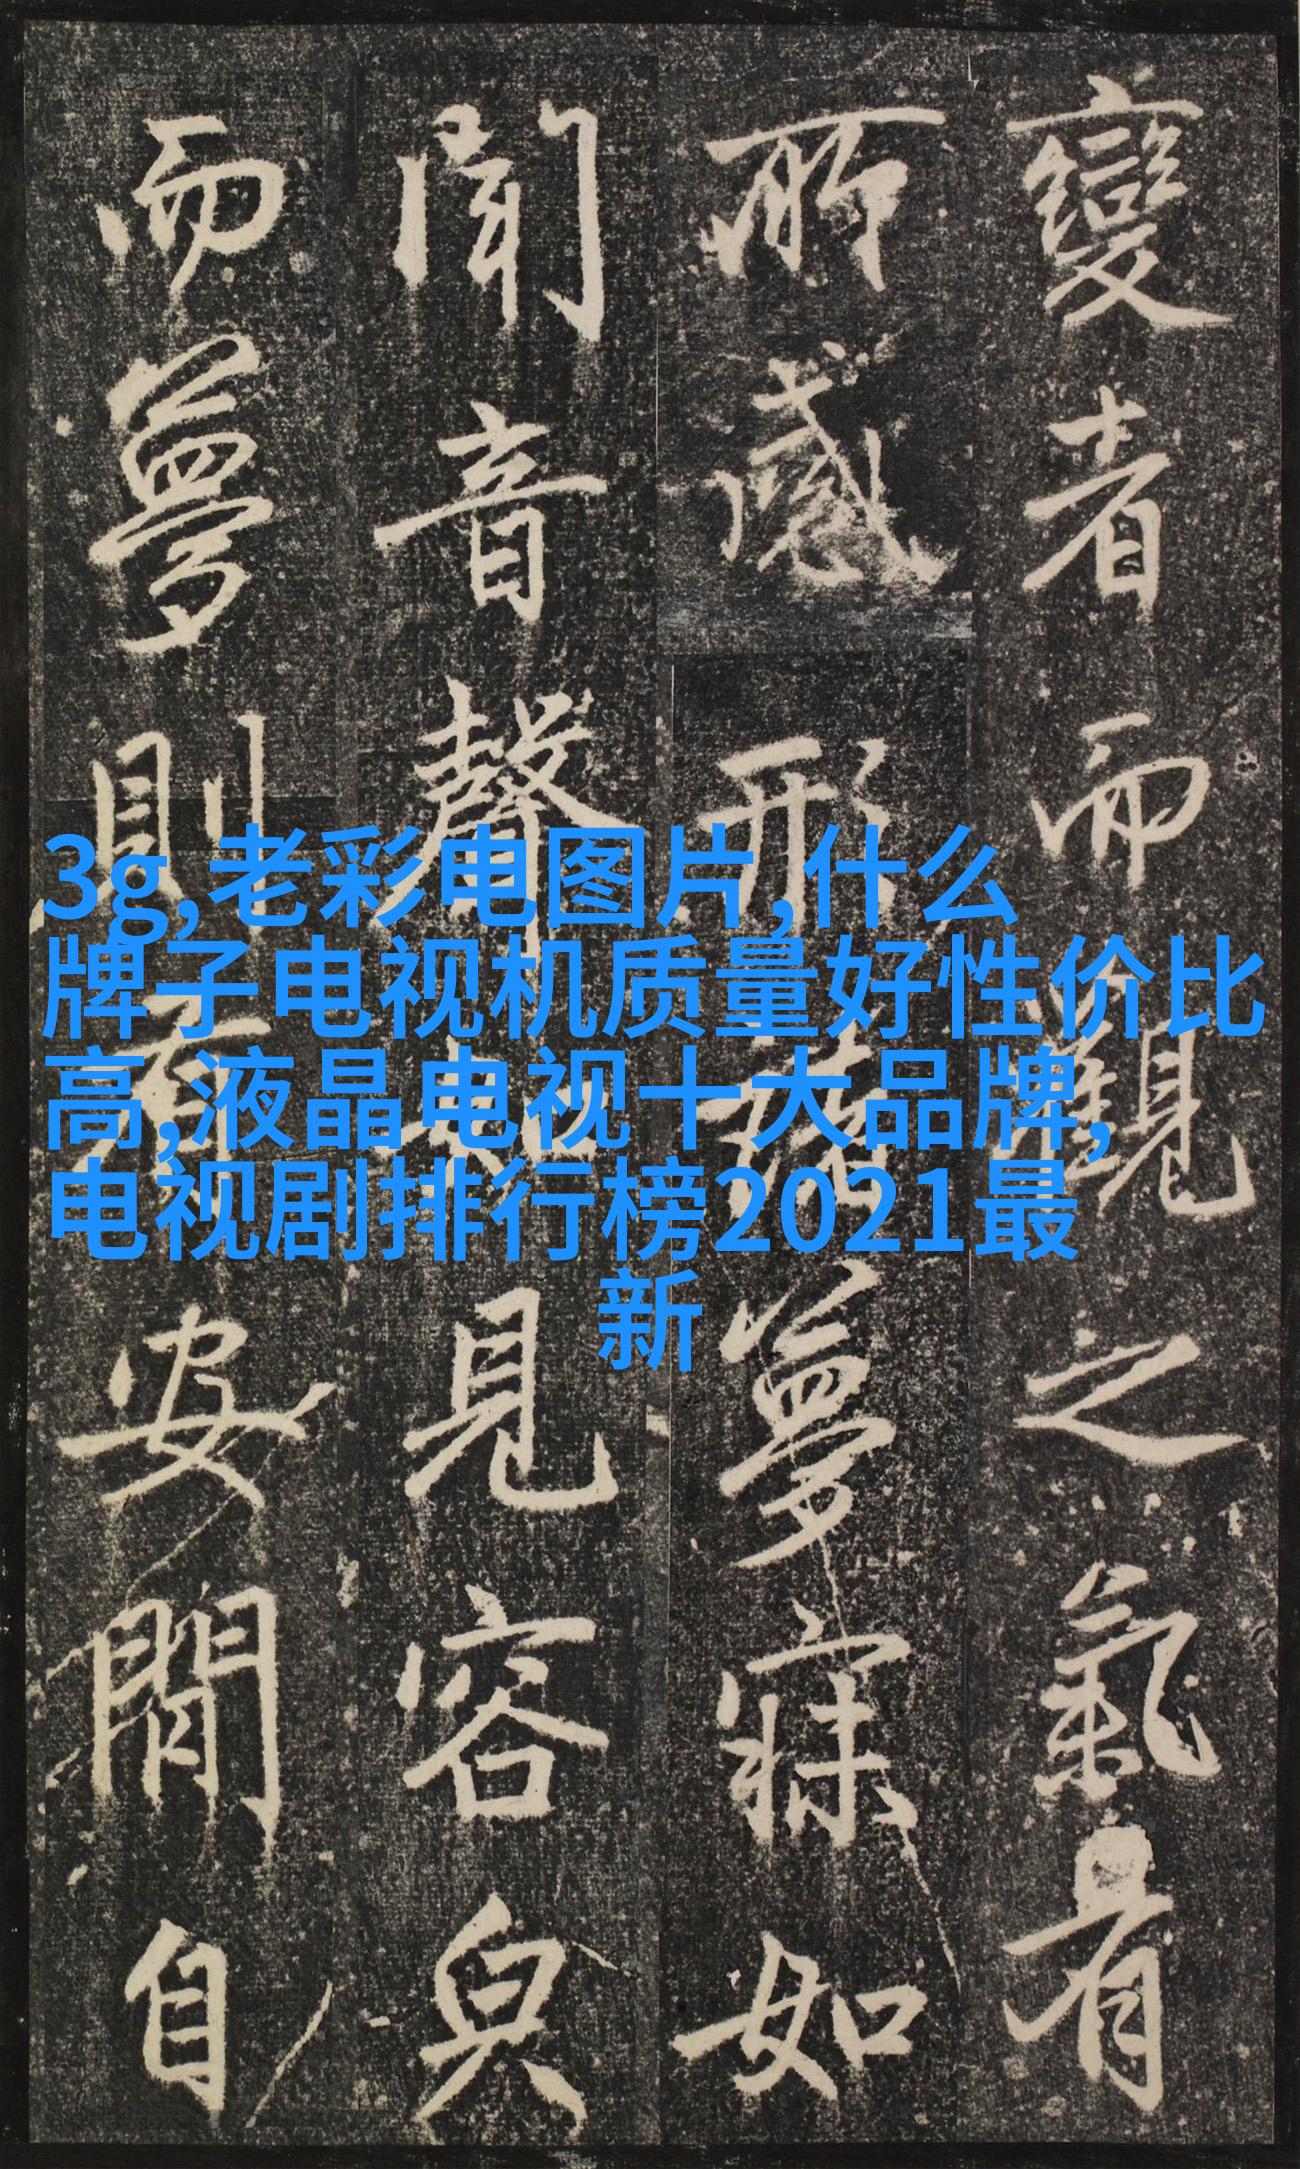 變者而觀之氣有
所感形諸夢寐如
聞音聲見容皃
而夢則安閒自
3g,老彩电图片,什么
牌子电视机质量好性价比
高,液晶电视十大品牌,
电视剧排行榜2021最
新